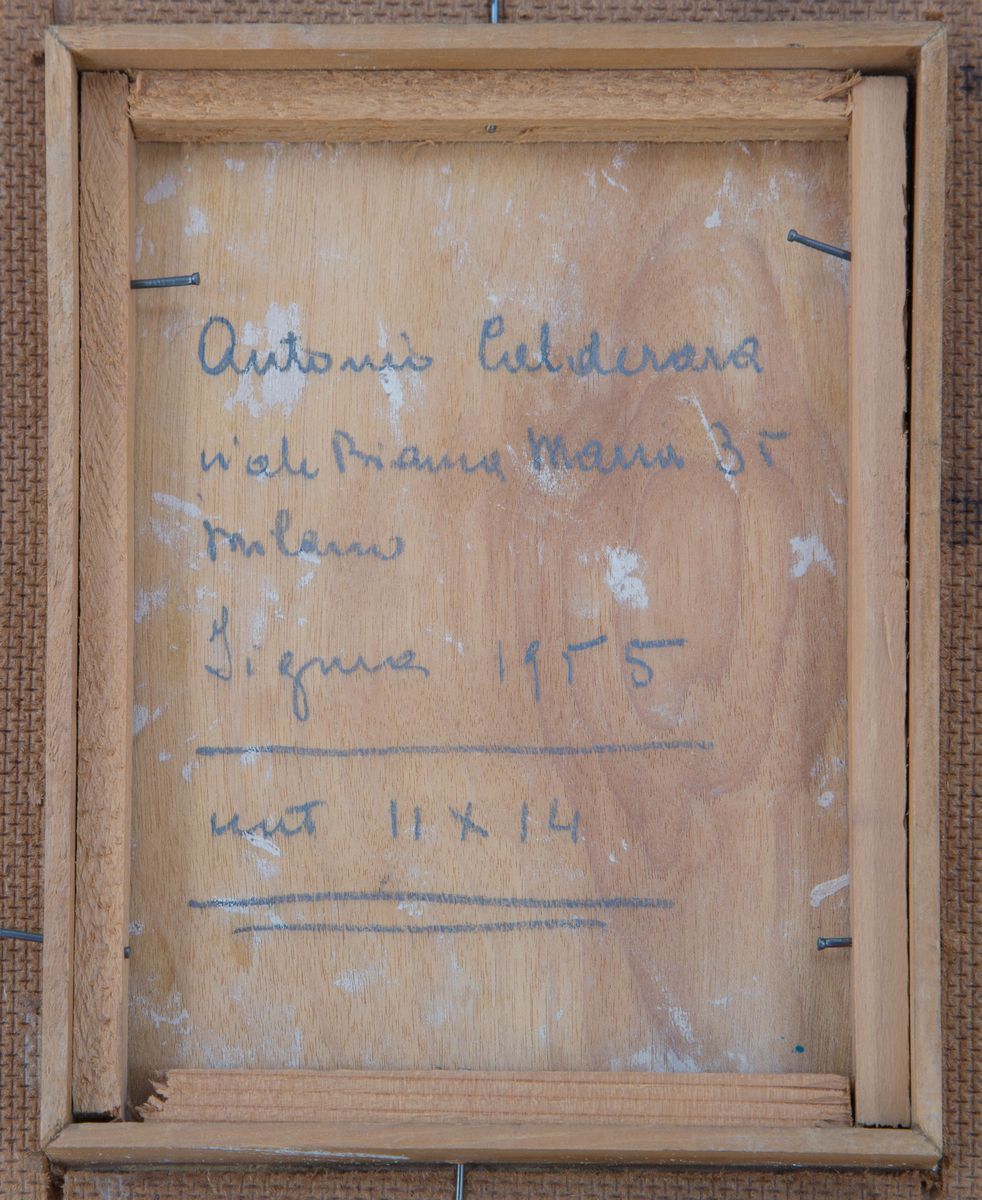 Antonio Calderara
viale Bianca Maria 35
Milano
1955
11 x 14